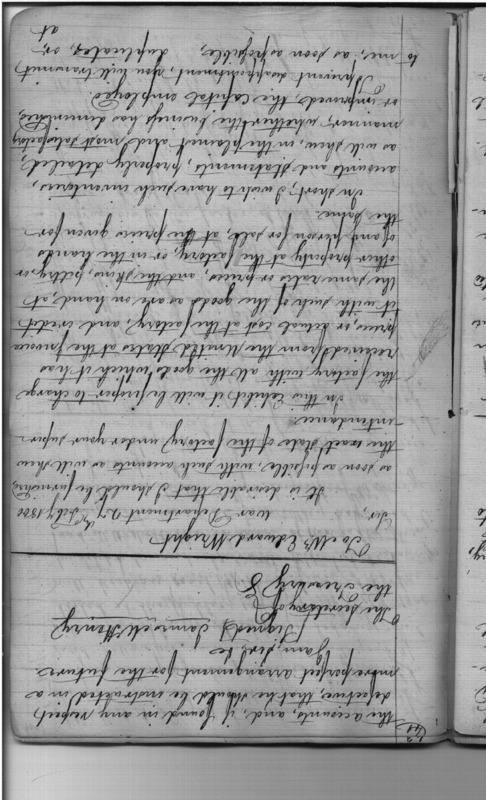 42
the accounts, and, if found in any respect
defective, that he should be instructed in a
more perfect arrangement for the future.
I am, Sir, &c
Signed
the Secretary of
the Treasury
To Mr. Edward Wright
Sir, War Department July 1800
It is desirable that I should be furnished,
as soon as possible, with such accounts as will shew
the exact state of the factory under your super
intendance.
In this Exhibit it will be proper to charge
the factory with all the goods which it has
received from the United States at the Invoice
prices, or actual cost at the factory, and credit
it with such of the goods as are on hand, at
the same rates or prices, and the skins, peltry or
other property at the factory, or in the hands
of any person for sale, at the prices given for
the same.
In short, I wish to have such inventories,
accounts and statements, properly detailed,
as will shew, in the plainest and most satisfactory
manner, whether the business has diminished,
or improved the capital employed.
To prevent disappointment, you will transmit
to me, as soon as possible, duplicates, or,
at